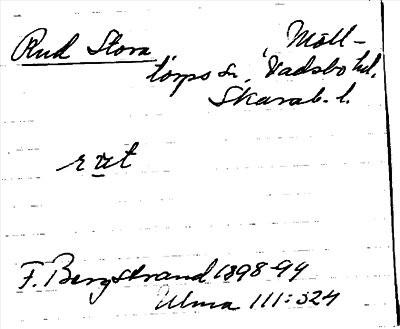 Rud Stora, Möll-
torps sn, Vadsbo hd.
Skarab. l.
rut
F. Bergstrand 1898-99
Ulma 111:324